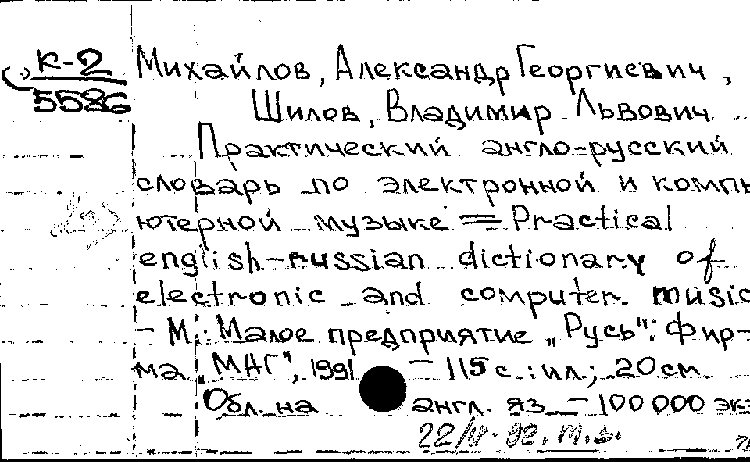 К-2
5586
Михайлов, Александр Георгиевич,
Шилов, Владимир Львович
Практический англо-русский
словарь по электронной и компь
ютерной музыке = Practical
english-russian dictionary of
electronic and computer music
- М.: Малое предприятие „Русь": Фир-
ма „МАГ", 1991 - 115 с.: ил.; 20 см
Обл. на англ. яз. - 100 000 экз